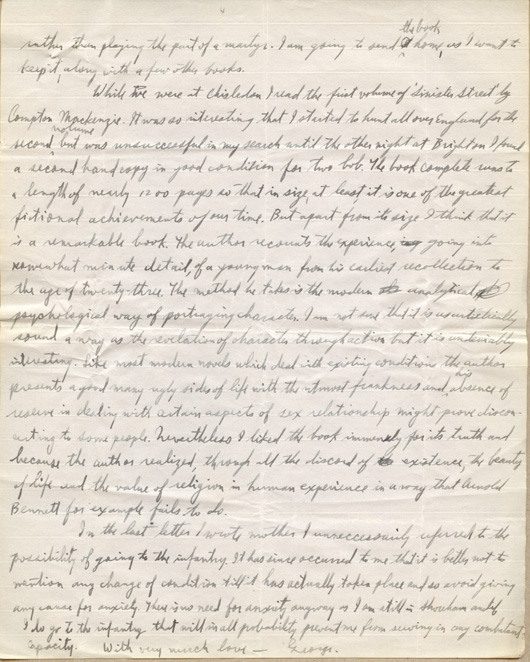 the book
rather than playing the part of a martyr. I am going to send home, as I want to
keep it, along with a few other books.
While we were at Chisledon I read the first volume of 'Sinister Street' by
Compton Mackenzie. It was so interesting that I started to hunt all over England for the
second volume but was unsuccessful in my search until the other night at Brighton I found
a second hand copy in good condition for two bob. The book complete runs to
a length of nearly 1200 pages so that in size, at least, it is one of the greatest
fictional achievements of our time. But apart from its size I think that it
is a remarkable book. The author recounts the experience, going into
somewhat minute detail, of a young man from his earliest recollection to
the age of twenty-three. The method he takes is the modern analytical
psychological way of portraying character. I am not sure that it is as artistically
sound a way as the revelation of character through action but it is undeniably
interesting. Like most modern novels which deal with existing conditions the author
presents a good many ugly sides of life with the utmost frankness and his absence of
reserve in dealing with certain aspects of sex relationship might prove discon-
certing to some people. Nevertheless I liked the book immensely for its truth and
because the author realized, through all the discord of existence, the beauty
of life and the value of religion in human experience in a way that Arnold
Bennett for example fails to do.
In the last letter I wrote mother I unnecessarily referred to the
possibility of going to the infantry. It has since occurred to me that it is better not to
mention any change of condition till it has actually taken place and so avoid giving
any cause for anxiety. There is no need for anxiety anyway as I am still in Shoreham and if
I do go to the infantry that will in all probability prevent me from serving in any combatant
capacity. With very much love — George.